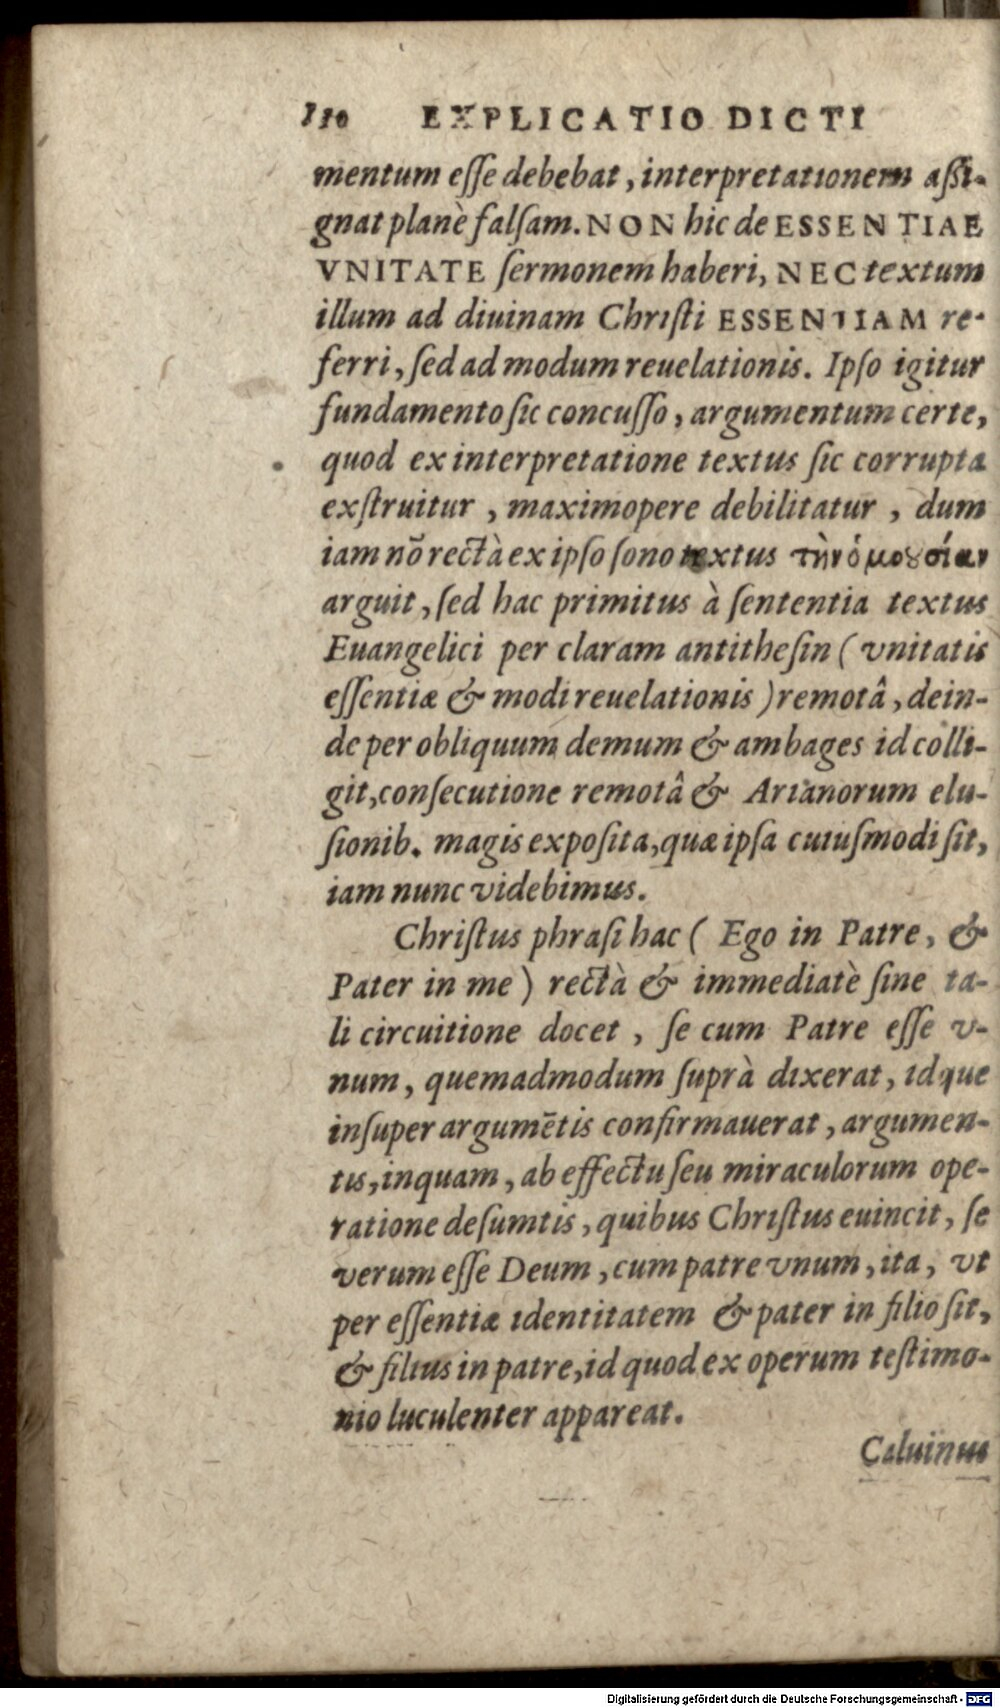 110 EXPLICATIO DICTI
mentum eſſe debebat, interpretationem aſſi-
gnat planè falſam. NON hic de ESSENTIAE
VNITATE ſermonem haberi, NEC textum
illum ad diuinam Chriſti ESSENTIAM re-
ferri, ſed ad modum reuelationis. Ipſo igitur
fundamento ſic concuſſo, argumentum certe,
quod ex interpretatione textus ſic corrupta
exſtruitur, maximopere debilitatur, dum
iam nō rectà ex ipſo ſono textus τὴν ὁμουσίαν
arguit, ſed hac primitus à ſententia textus
Euangelici per claram antitheſin (vnitatis
eſſentiæ & modi reuelationis) remotâ, dein-
de per obliquum demum & ambages id colli-
git, conſecutione remotâ & Arianorum elu-
ſionib. magis expoſita, quæ ipſa cuiuſmodi ſit,
iam nunc videbimus.
Chriſtus phraſi hac (Ego in Patre, &
Pater in me) rectà & immediatè ſine ta-
li circuitione docet, ſe cum Patre eſſe v-
num, quemadmodum ſuprà dixerat, idque
inſuper argumētis confirmauerat, argumen-
tis, inquam, ab effectu ſeu miraculorum ope-
ratione deſumtis, quibus Chriſtus euincit, ſe
verum eſſe Deum, cum patre vnum, ita, vt
per eſſentiæ identitatem & pater in filio ſit,
& filius in patre, id quod ex operum teſtimo-
nio luculenter appareat.
Caluinus
Digitalisierung gefördert durch die Deutsche Forschungsgemeinschaft - DFG